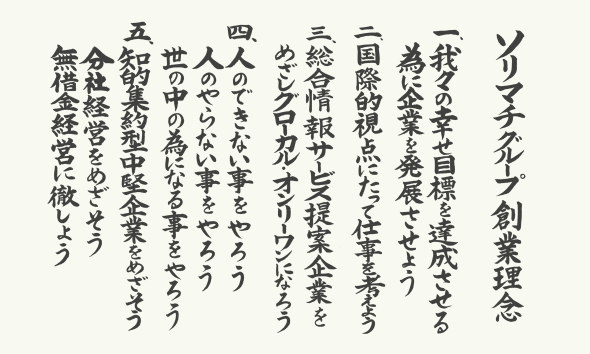 ソリマチグループ 創業理念
一、我々の幸せ目標を達成させる
為に企業を発展させよう
二、国際的視点にたって仕事を考えよう
三、総合情報サービス提案企業を
めざしグローカル・オンリーワンになろう
四、人のできない事をやろう
人のやらない事をやろう
世の中の為になる事をやろう
五、知的集約型中堅企業をめざそう
分社経営をめざそう
無借金経営に徹しよう